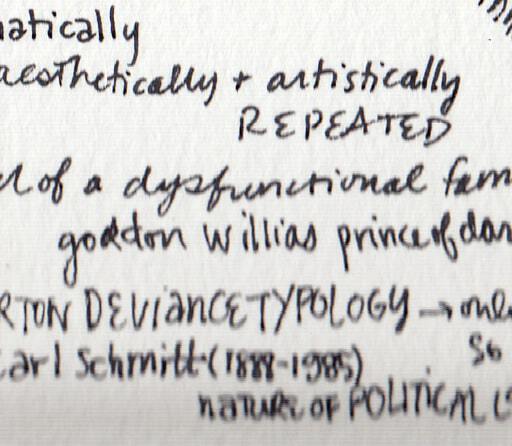 atically
aesthetically + artistically
REPEATED
of a dysfunctional fam
goddon willias prince of dar
RTON DEVIANCE TYPOLOGY →
arl Schmitt (1888-1985)
NATURE OF POLITICAL